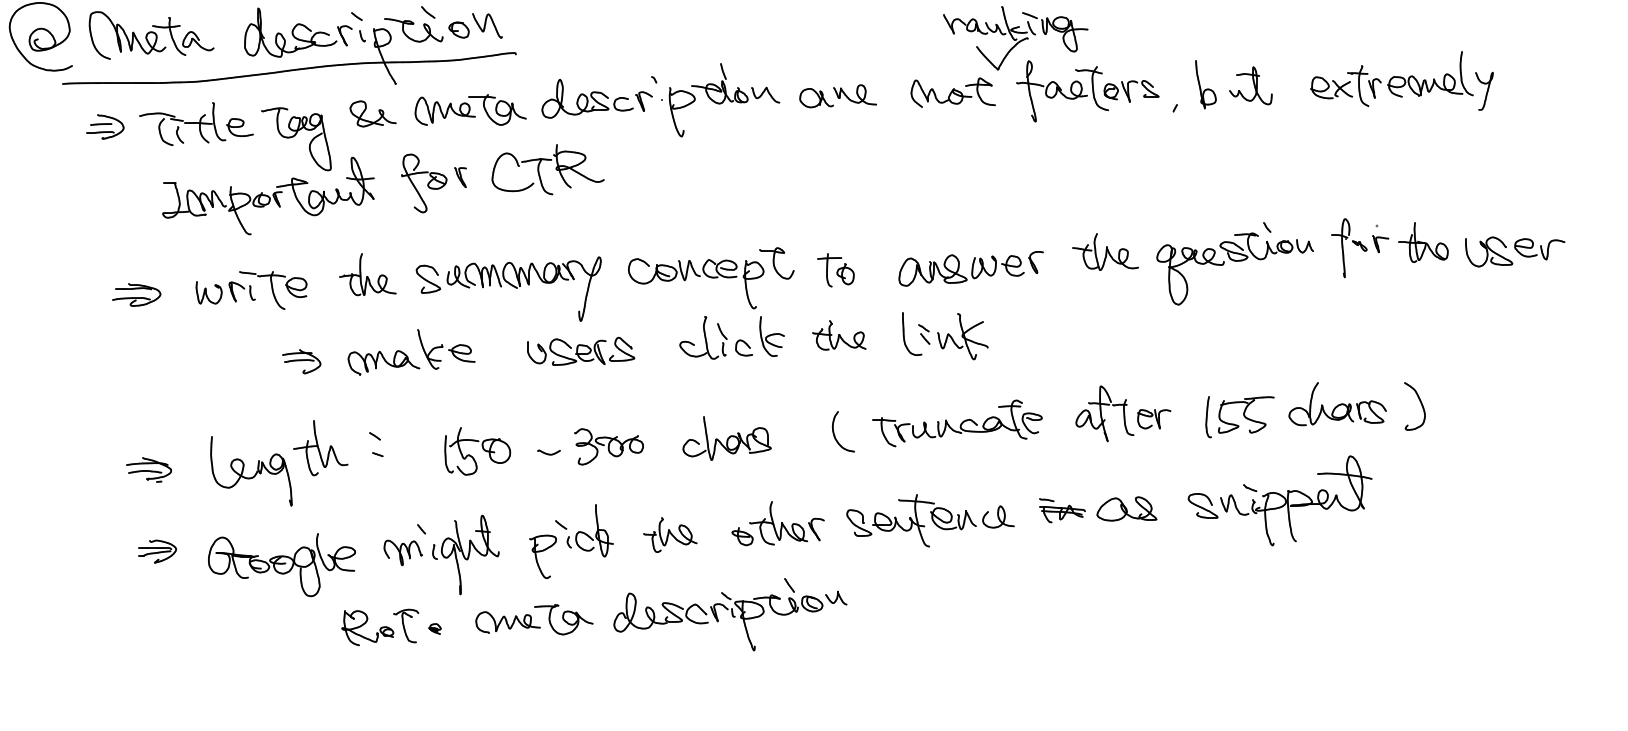 @ Meta description
⇒ Title Tag & meta description are not ranking factors, but extremely
Important for CTR
⇒ write the summary concept to answer the question for the user
⇒ make users click the link
⇒ length : 150 ~ 300 chars ( truncate after 155 chars )
⇒ Google might pick the other sentence as snippet
R.T. meta description